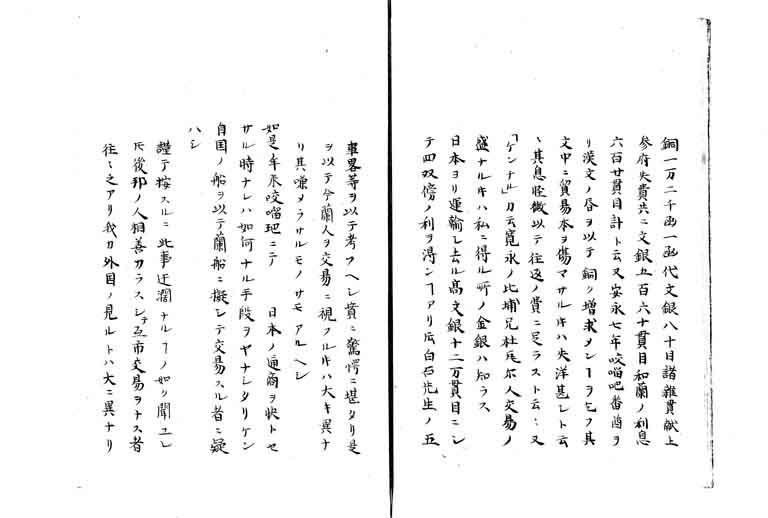 銅一万二千函一函代文銀八十目諸雑費献上
参府失費共ニ文銀五百六十貫目和蘭ノ利息
六百廿貫目計ト云又安永七年咬𠺕吧番酋ヨ
リ漢文ノ咨ヲ以テ銅ク増求メンヿヲ乞フ其
文中ニ貿易本ヲ傷マサルキハ失洋甚レト云
々其息咥微以テ往返ノ費ニ足ラスト云々又
「ケンナル」カ云寛永ノ比埔兄杜尾尔人交易ノ
盛ナルキハ私ニ得ル所ノ金銀ハ知ラス
日本ヨリ運輸シ去ル髙文銀十二万貫目ニシ
テ四双傍ノ利ヲ得ンヿアリ𪜈白石先生ノ五
事畧等ヲ以テ考フヘシ實ニ驚愕ニ堪タリ是
ヲ以テ今蘭人ヲ交易ニ視フルキハ大キ異ナ
リ其嫌メラサルモノサモアルヘシ
如是年来咬𠺕吧ニテ 日本ノ通商ヲ快トセ
サル時ナレハ如何ナル手段ヲヤナシタリケン
自国ノ船ヲ以テ蘭船ニ擬シテ交易スル者ニ疑
ハシ
謹テ按スルニ此事迂濶ナルヿノ如ク聞ユレ
𪜈後邦ノ人相善カラスシテ互市交易ヲナス者
往々之アリ我カ外国ノ見ルトハ大ニ異ナリ